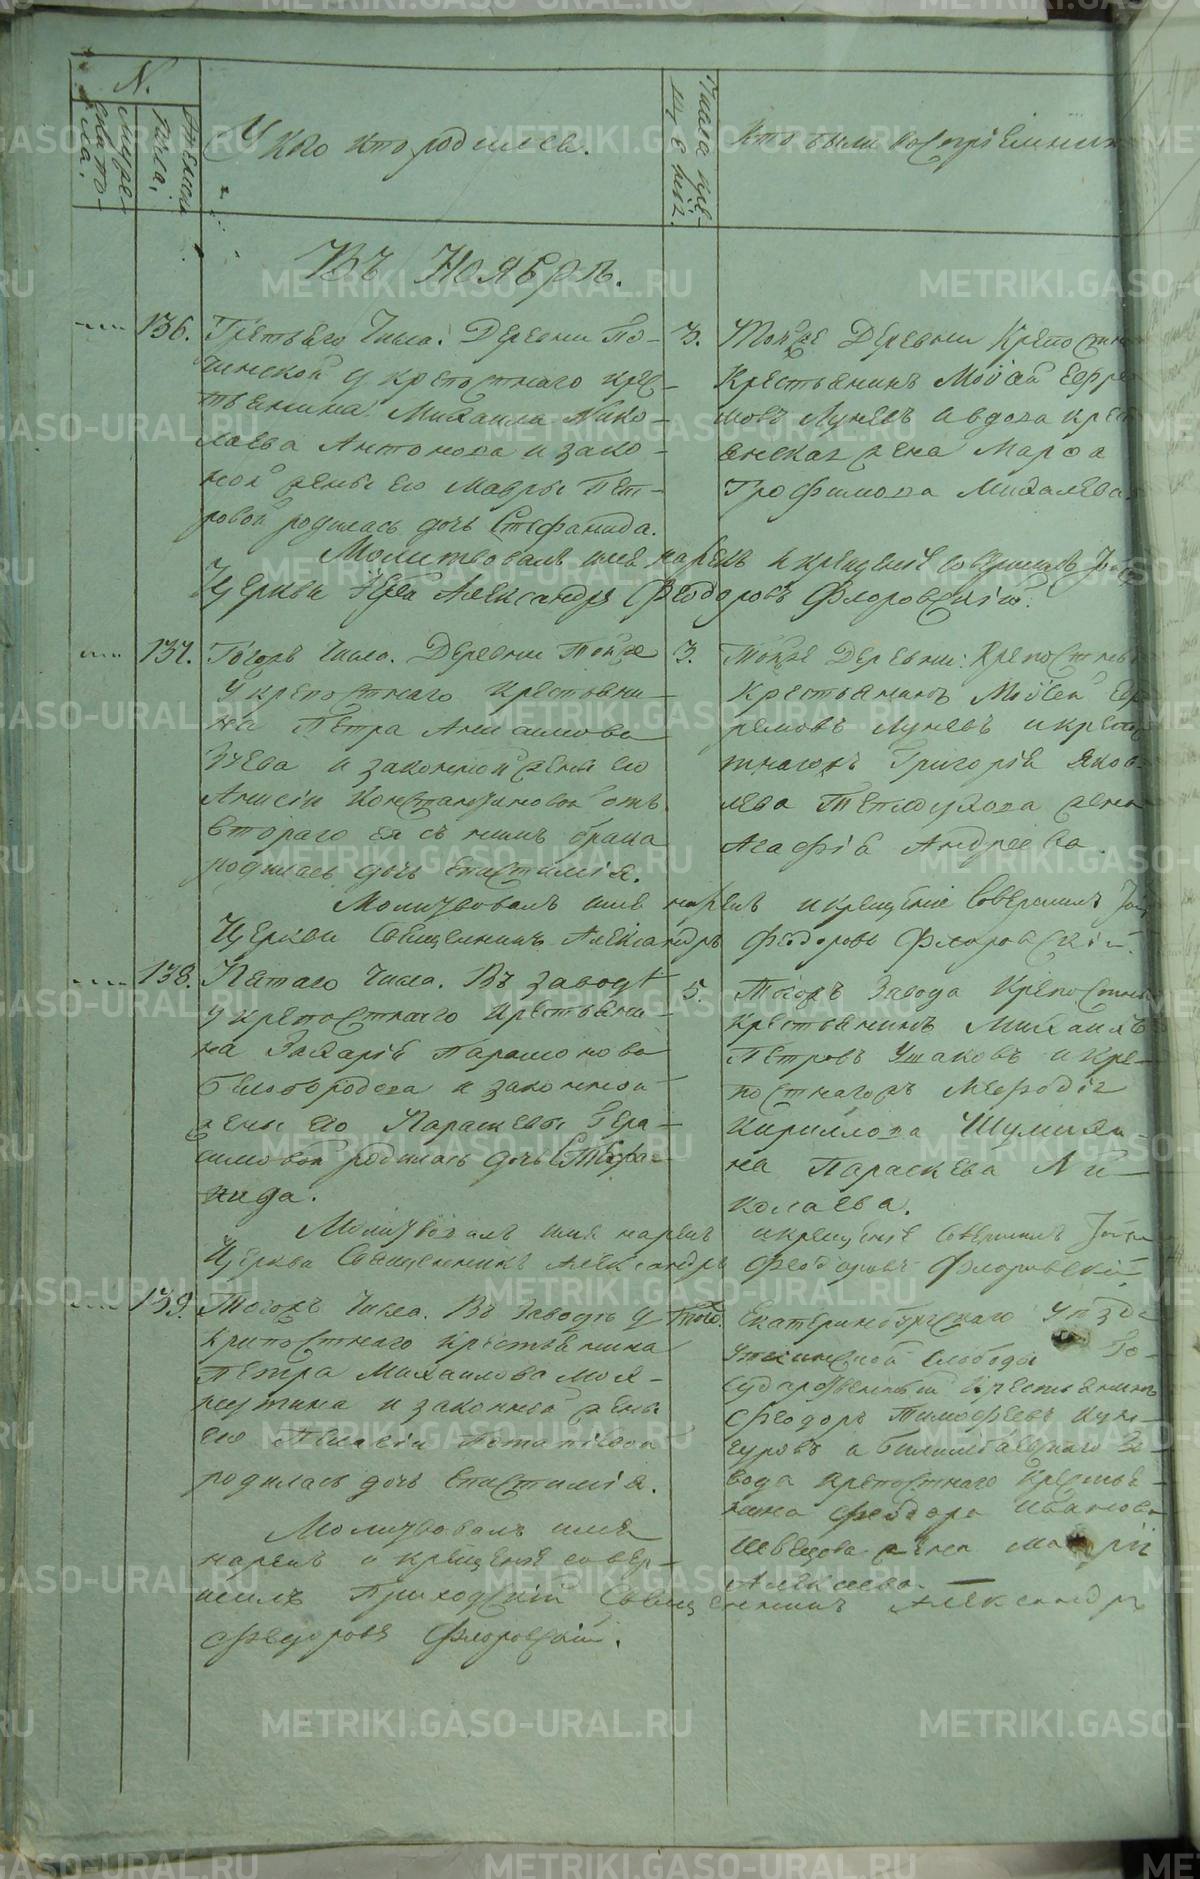 N.
Мужеска пола.
Женска пола.
У кого кто родился.
Числа крещенія.
Кто были воспріемник
Въ Ноябрѣ.
136. Третьяго Числа. Деревни По-
чинской у крепостнаго крес-
тьянина Михаила Нико-
лаева Антонова и закон-
ной жены его Мавры Пет-
ровой родилась дочь Стефанида.
3. Тойже Деревни Крепостн
Крестьянинъ Мойсей Ефре
мовъ Луневъ и вдова крес
янская жена Марѳа
Трофимова Михалева
Молитвовалъ имя нарекъ и крещеніе совершилъ
Церкви Іерей Александръ Феодоровъ Флоровскій.
137. Тогожъ Числа. Деревни Тойже
у крепостнаго крестьяни-
на Петра Анисимова
Зуева и законной жены его
Анисіи Константиновой отъ
втораго ея съ нимъ брака
родилась дочь Епистимія.
3. Тойже Деревни Крепостны
Крестьянинъ Мойсей Еф
ремовъ Луневъ и крепос
тнагожъ Григорія Яков-
лева Теплоухова жена
Агафія Андреева.
Молитвовалъ имя нарекъ и крещеніе Совершилъ
Церкви Священникъ Александръ Феодоровъ Флоровскій.
138. Пятаго Числа. Въ Заводѣ
у крепостнаго Крестьяни-
на Захарія Парамонова
Белобородова и законной
жены его Параскевы Гера-
симовой родилась дочь Стефа-
нида.
5. Тогожъ Завода Крепостны
Крестьянинъ Михаилъ
Петровъ Ушаковъ и Кре-
постнагожъ Мефодія
Кирилова Шумихи-
на Параскева Ни-
колаева.
Молитвовалъ имя нарекъ и крещеніе Совершилъ
Церкви Священникъ Александръ Феодоровъ Флоровскій
139. Тогожъ Числа. Въ Заводѣ у
крипостнаго Крестьянина
Петра Михаилова Мох-
реутина и законной жены
его Пелагіи
родилась дочь Епистимія.
Того. Екатеринбургскаго Уѣзда
Уткинской Слободы Го-
сударственный Крестьянинъ
Феодоръ Тимофеевъ Кун-
гуровъ и Билимбаевскаго За-
вода крепостнаго Крестья-
нина Феодора Иванова
Шевецова жена Марія
Алексеева.
Молитвовалъ имя
нарекъ и крещеніе совер-
шилъ Приходскій Священникъ Александръ
Федоровъ Флоровскій.
METRIKI.GASO-URAL.RU